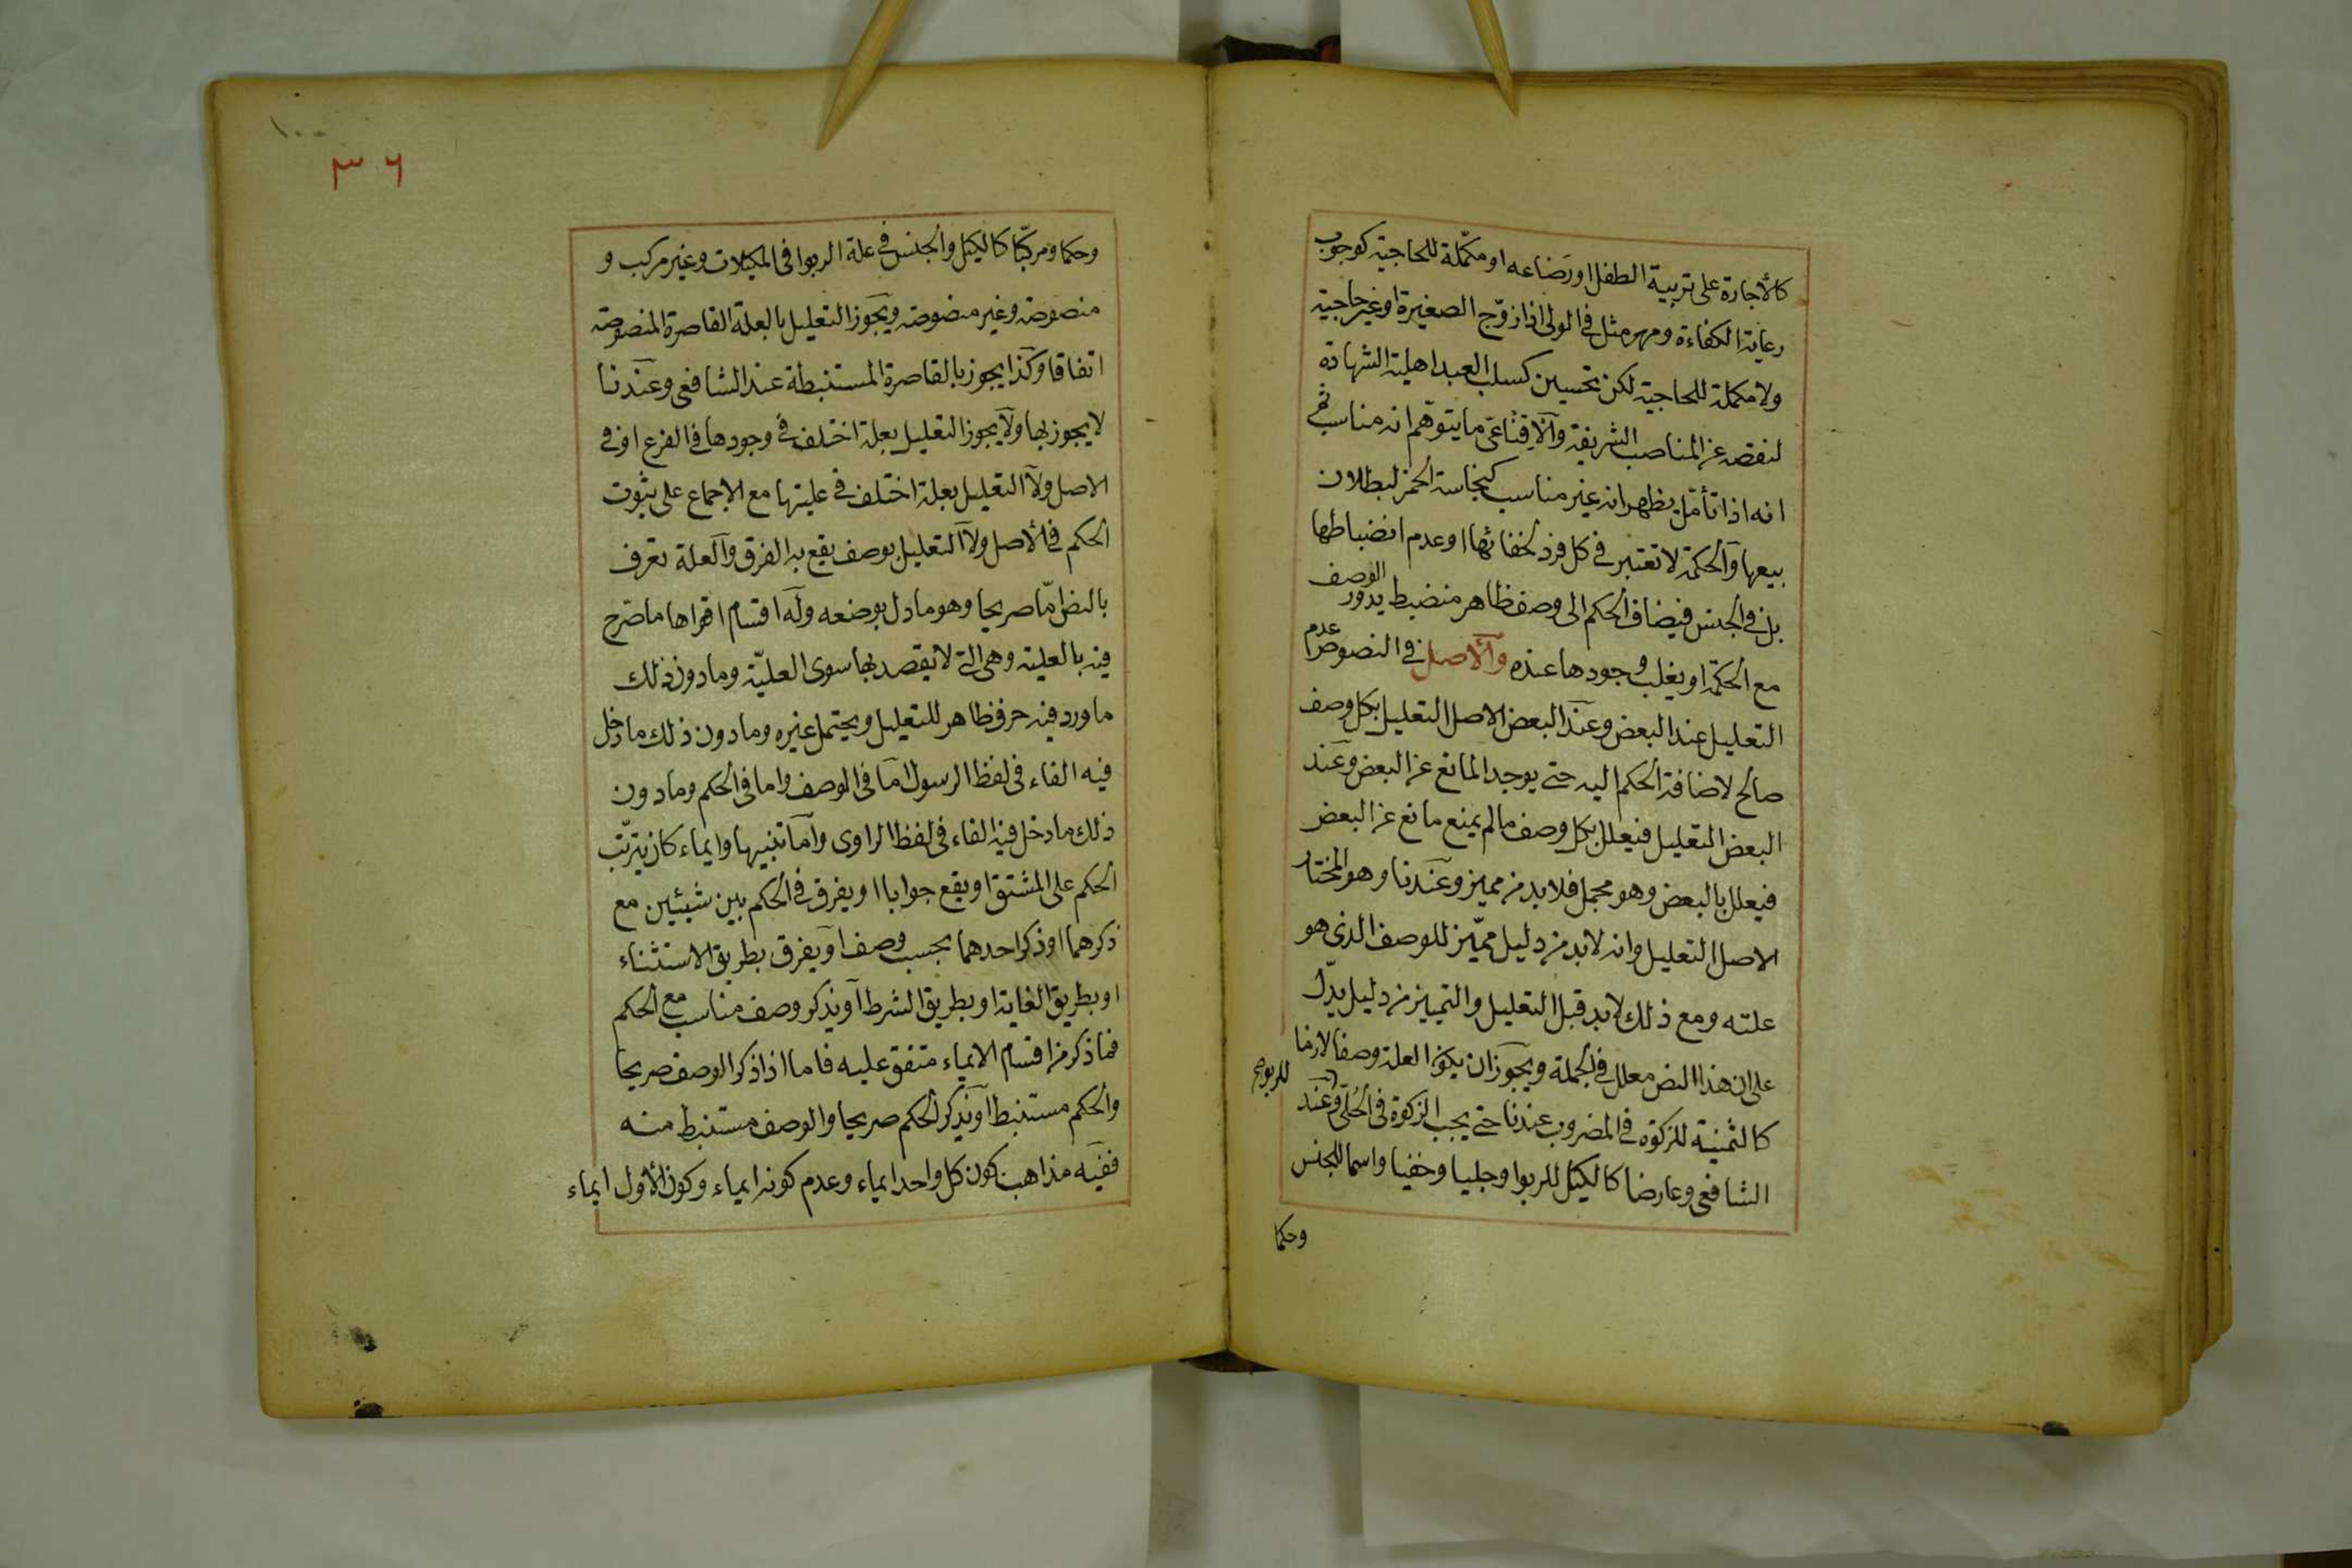 كالأجارة على تربية الطفل او رضاعه او مكمّلة للحاجية كوجوب
رعاية الكفاءة ومهر مثل في الولى اذا زوّج الصغيرة او غير حاجية
ولا مكملة للحاجية لكن تحسين كسلب العبد اهلية الشهادة
لنقصه عن المناصب الشريفة والاقناعىّ ما يتوهّم انه مناسب ثم
انه اذا تأمّل يظهر انه غير مناسب كنجاسة الخمر لبطلان
بيعها والحكمة لا تعتبر في كل فرد لخفائها او عدم انضباطها
بل في الجنس فيضاف الحكم الى وصف ظاهر منضبط يدور الوصف
مع الحكمة او يغلب وجودها عنده والأصل في النصوص عدم
التعليل عند البعض وعند البعض الاصل التعليل بكل وصف
صالح لاضافة الحكم اليه حتى يوجد المانع عن البعض وعند
البعض التعليل فيعلل بكل وصف مالم يمنع مانع عن البعض
فيعلل بالبعض وهو مجمل فلا بد من مميز وعندنا وهو المختار
الاصل التعليل وانه لا بد من دليل مميّز للوصف الذي هو
علته ومع ذلك لا بد قبل التعليل والتمييز من دليل يدلّ
على ان هذا النص معلل في الجملة ويجوز ان يكون العلة وصفا لازما
كالثمنية للزكوة في المضروب عندنا حتى يجب الزكوة في الحلى وعند
للربوا صح
الشافعى وعارضا كالكيل للربوا وجليا وخفيا واسما للجنس
وحكما
١٠٠
٣٦
وحكما ومركّبا كالكيل والجنس في علة الربوا فى المكيلات وغير مركب و
منصوصة وغير منصوصة ويجوز التعليل بالعلة القاصرة المنصوصة
اتفاقا وكذا يجوز بالقاصرة المستنبطة عند الشافعى وعندنا
لا يجوز بها ولا يجوز التعليل بعلة اختلف في وجودها في الفرع او في
الاصل ولا التعليل بعلة اختلف في عليتها مع الاجماع على ثبوت
الحكم في الأصل ولا التعليل بوصف يقع به الفرق والعلة تعرف
بالنص امّا صريحا وهو ما دل بوضعه وله اقسام اقواها ما صرّح
فيه بالعلية وهى التى لا يقصد بها سوى العليّة وما دون ذلك
ما ورد فيه حرف ظاهر للتعليل ويحتمل غيره وما دون ذلك ما دخل
فيه الفاء فى لفظ الرسول اما فى الوصف واما فى الحكم وما دون
ذلك ما دخل فيه الفاء فى لفظ الراوى واما تنبيها وايماء كان يترتّب
الحكم على المشتق او يقع جوابا او يفرق في الحكم بين شيئين مع
ذكرهما او ذكر احدهما بحسب وصف او يفرق بطريق الاستثناء
او بطريق الغاية او بطريق الشرط او يذكر وصف مناسب مع الحكم
فما ذكر من اقسام الايماء متفق عليه فاما اذا ذكر الوصف صريحا
والحكم مستنبط او يذكر الحكم صريحا والوصف مستنبط منه
ففيه مذاهب كون كل واحد ايماء وعدم كونه ايماء وكون الأول ايماء